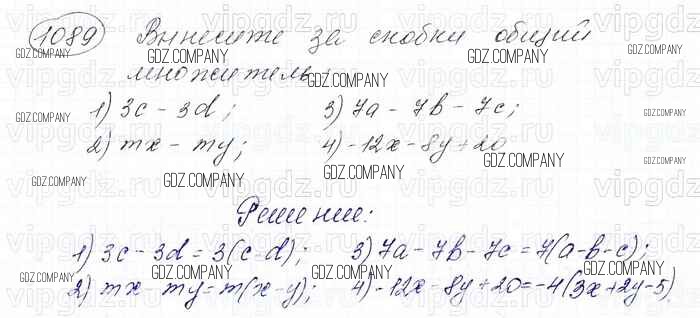 1089 Вынесите за скобки общий
множитель:
1) 3c - 3d; 3) 7a - 7b - 7c;
2) mx - my; 4) -12x - 8y + 20
Решение:
1) 3c - 3d = 3(c - d); 3) 7a - 7b - 7c = 7(a - b - c);
2) mx - my = m(x - y); 4) -12x - 8y + 20 = -4(3x + 2y - 5)
GDZ.COMPANY
vipgdz.ru